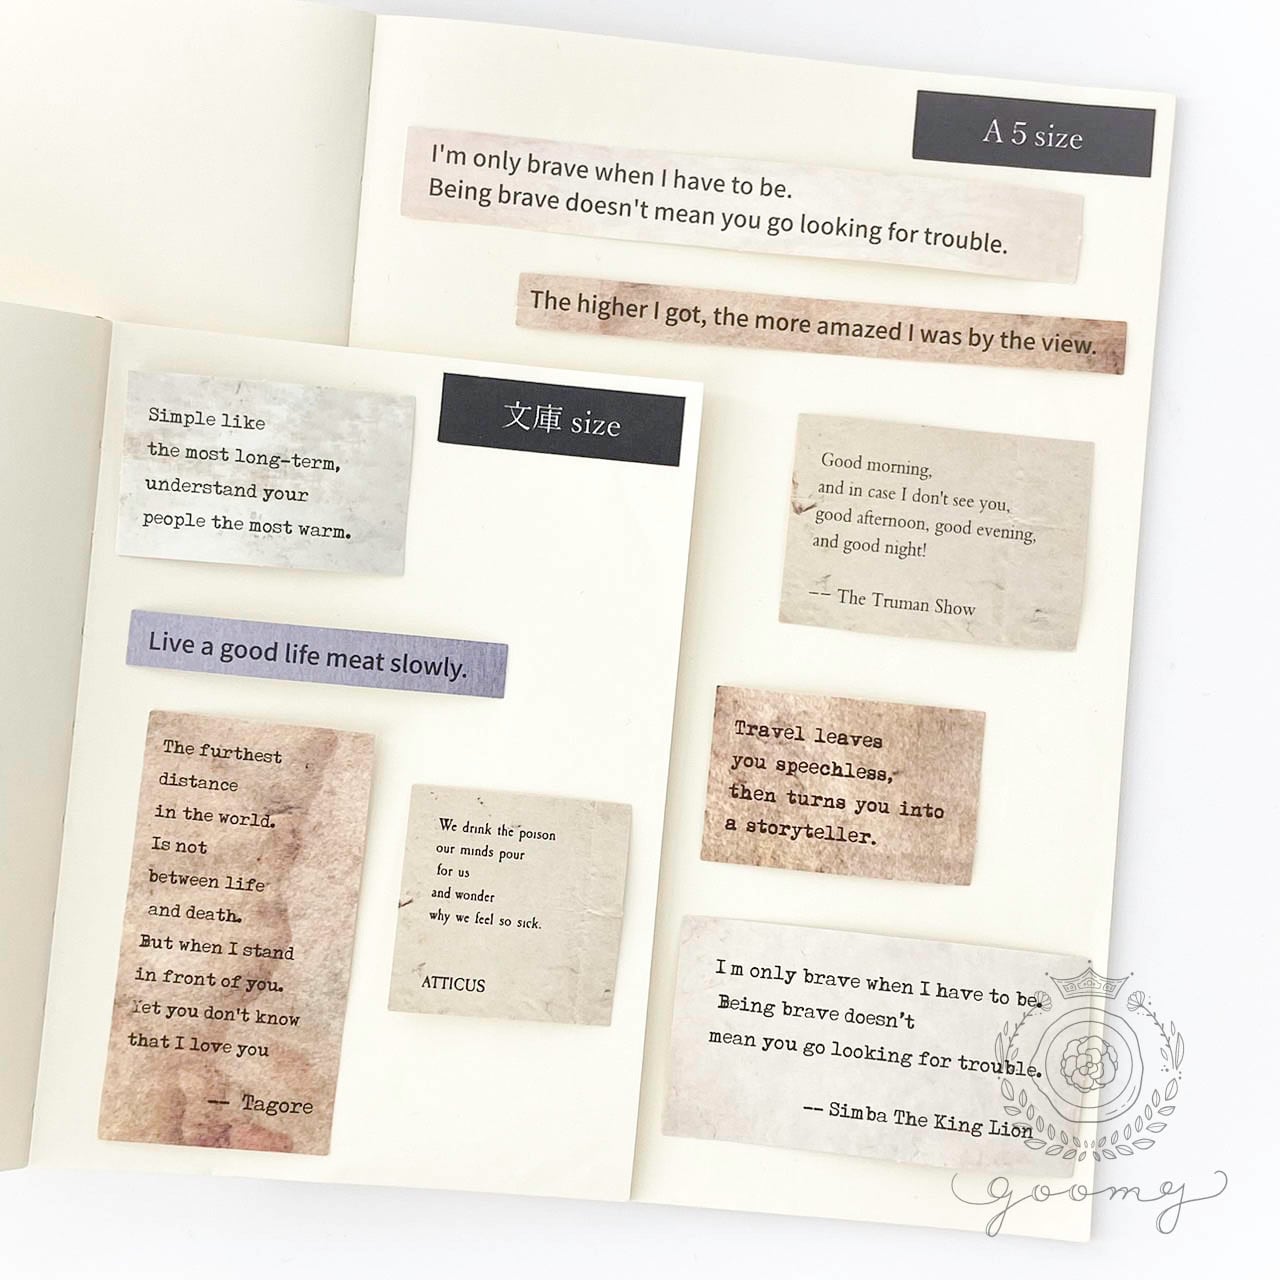 A 5 size
I'm only brave when I have to be.
Being brave doesn't mean you go looking for trouble.
The higher I got, the more amazed I was by the view.
Good morning,
and in case I don't see you,
good afternoon, good evening,
and good night!
-- The Truman Show
Travel leaves
you speechless,
then turns you into
a storyteller.
I m only brave when I have to be.
Being brave doesn't
mean you go looking for trouble.
-- Simba The King Lion
文庫 size
Simple like
the most long-term,
understand your
people the most warm.
Live a good life meat slowly.
The furthest
distance
in the world.
Is not
between life
and death.
But when I stand
in front of you.
Yet you don't know
that I love you
-- Tagore
We drink the poison
our minds pour
for us
and wonder
why we feel so sick.
ATTICUS
goomy